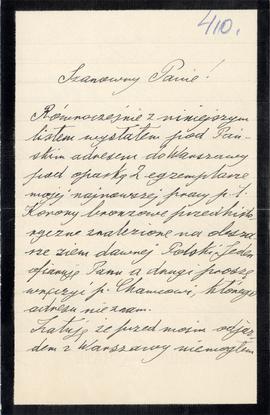 410.
Szanowny Panie!
Równocześnie z niniejszym
listem wysłałem pod Pań-
skim adresem do Warszawy
pod opaską 2 egzemplarze
mojej najnowszej pracy p. t.
Korony bronzowe przedhisto-
ryczne znalezione na obsza-
rze ziem dawnej Polski. Jeden
ofiaruję Panu a drugi proszę
wręczyć p. którego
adresu nie znam.
Żałuję, że przed moim odjaz-
dem z Warszawy nie mogłem